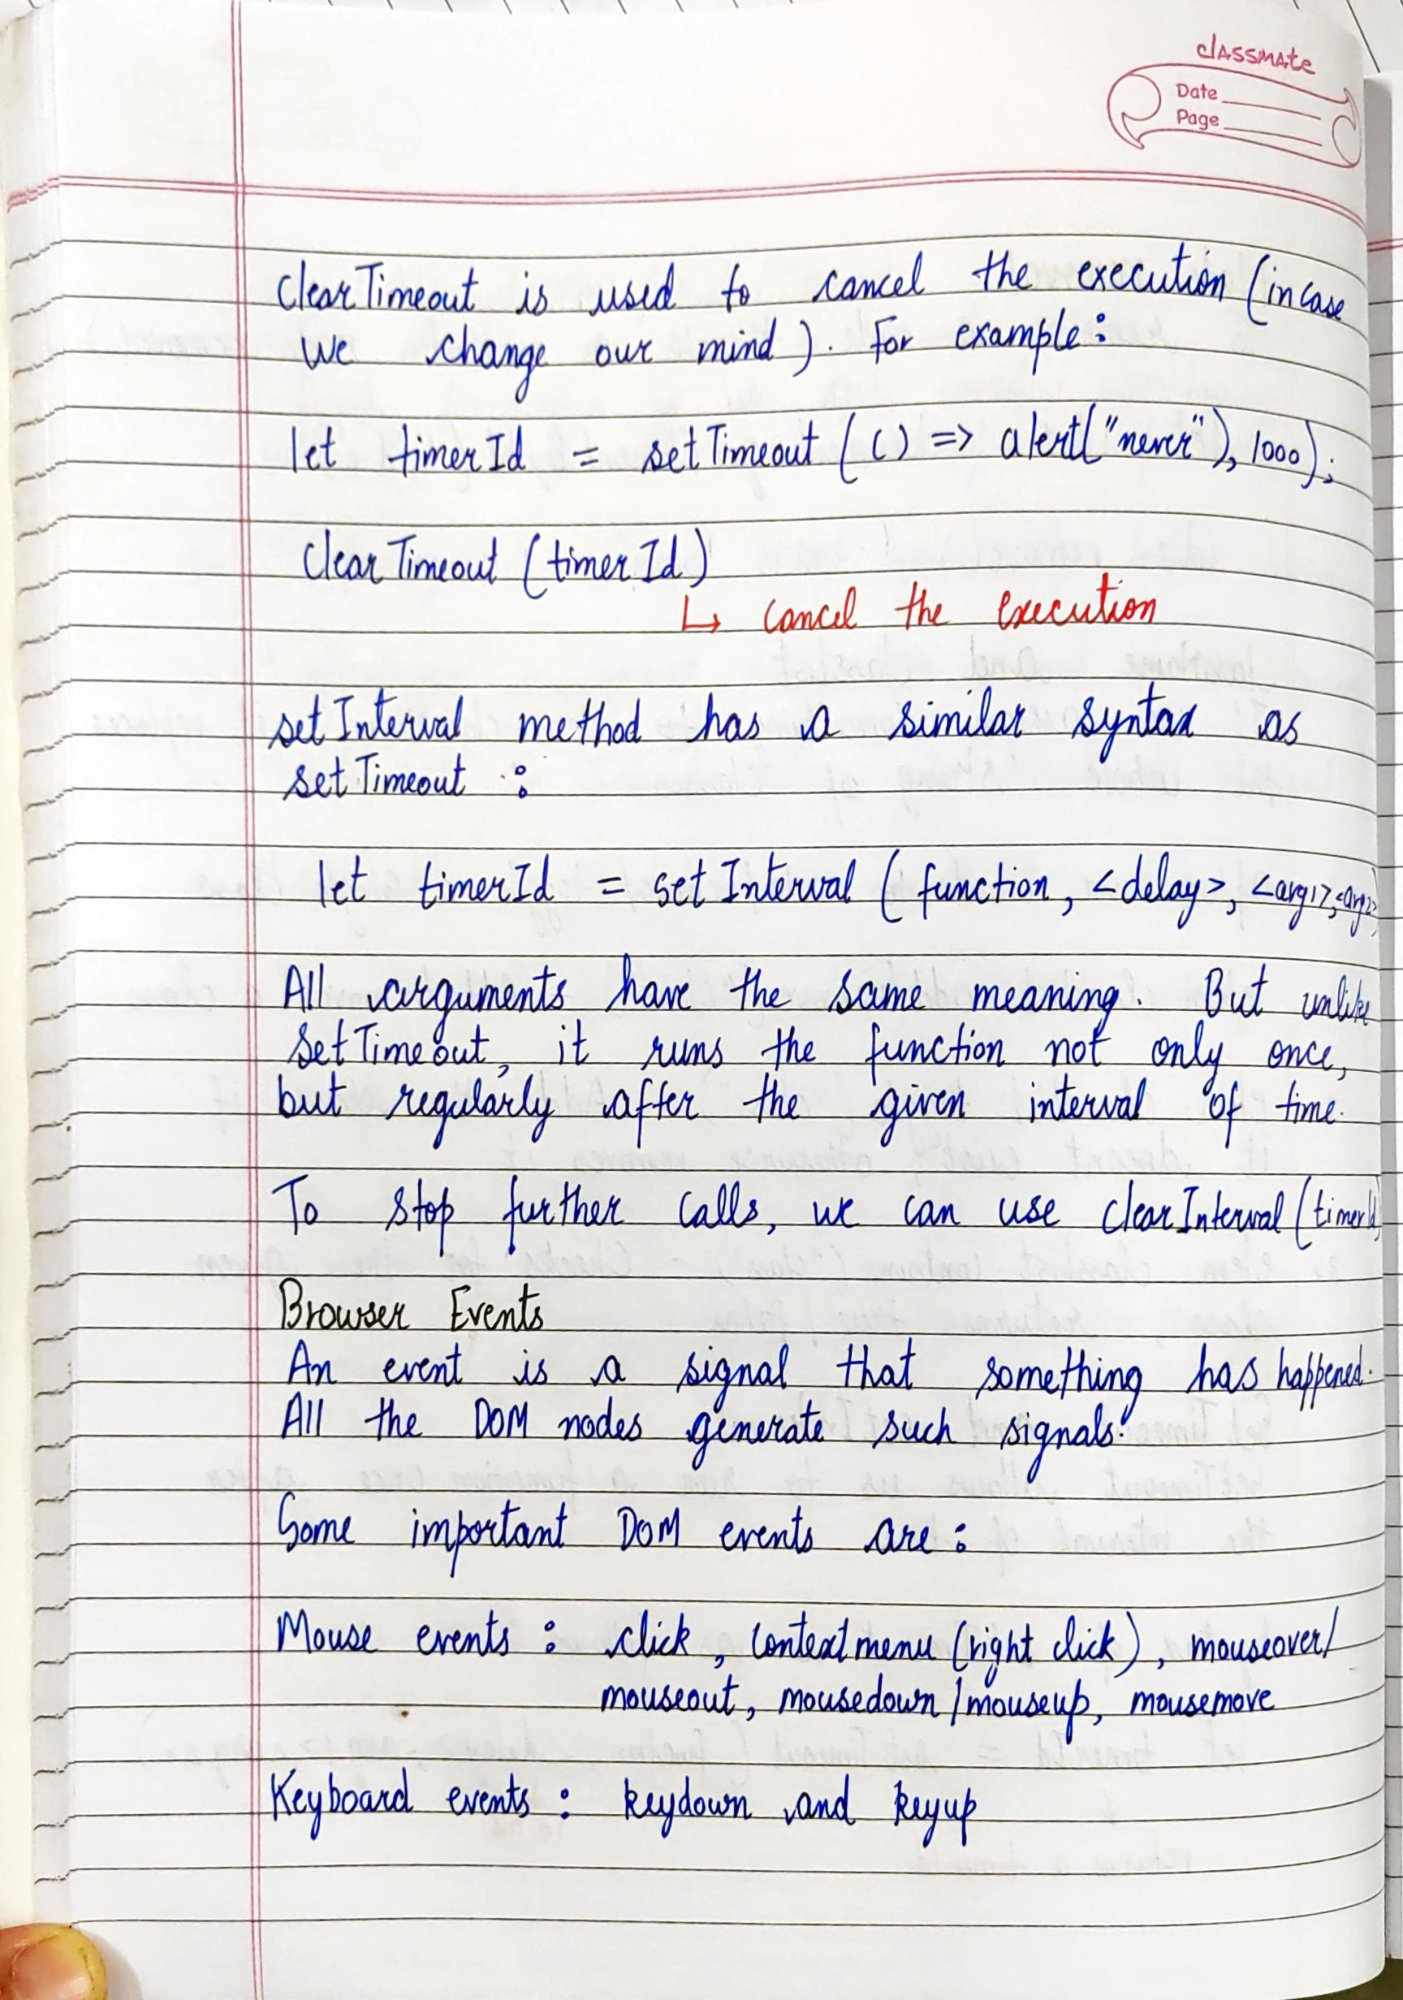 classmate
Date
Page
clearTimeout is used to cancel the execution (in case
we change our mind). For example:
let timerId = setTimeout (() => alert("never"), 1000);
clearTimeout (timerId)
↳ cancel the execution
setInterval method has a similar syntax as
setTimeout :
let timerId = setInterval (function, <delay>, <arg1>, <arg2>
All arguments have the same meaning. But unlike
setTimeout, it runs the function not only once,
but regularly after the given interval of time.
To stop further calls, we can use clearInterval (timerId
Browser Events
An event is a signal that something has happened.
All the DOM nodes generate such signals.
Some important DOM events are :
Mouse events : click, contextmenu (right click), mouseover/
mouseout, mousedown / mouseup, mousemove
Keyboard events : keydown and keyup